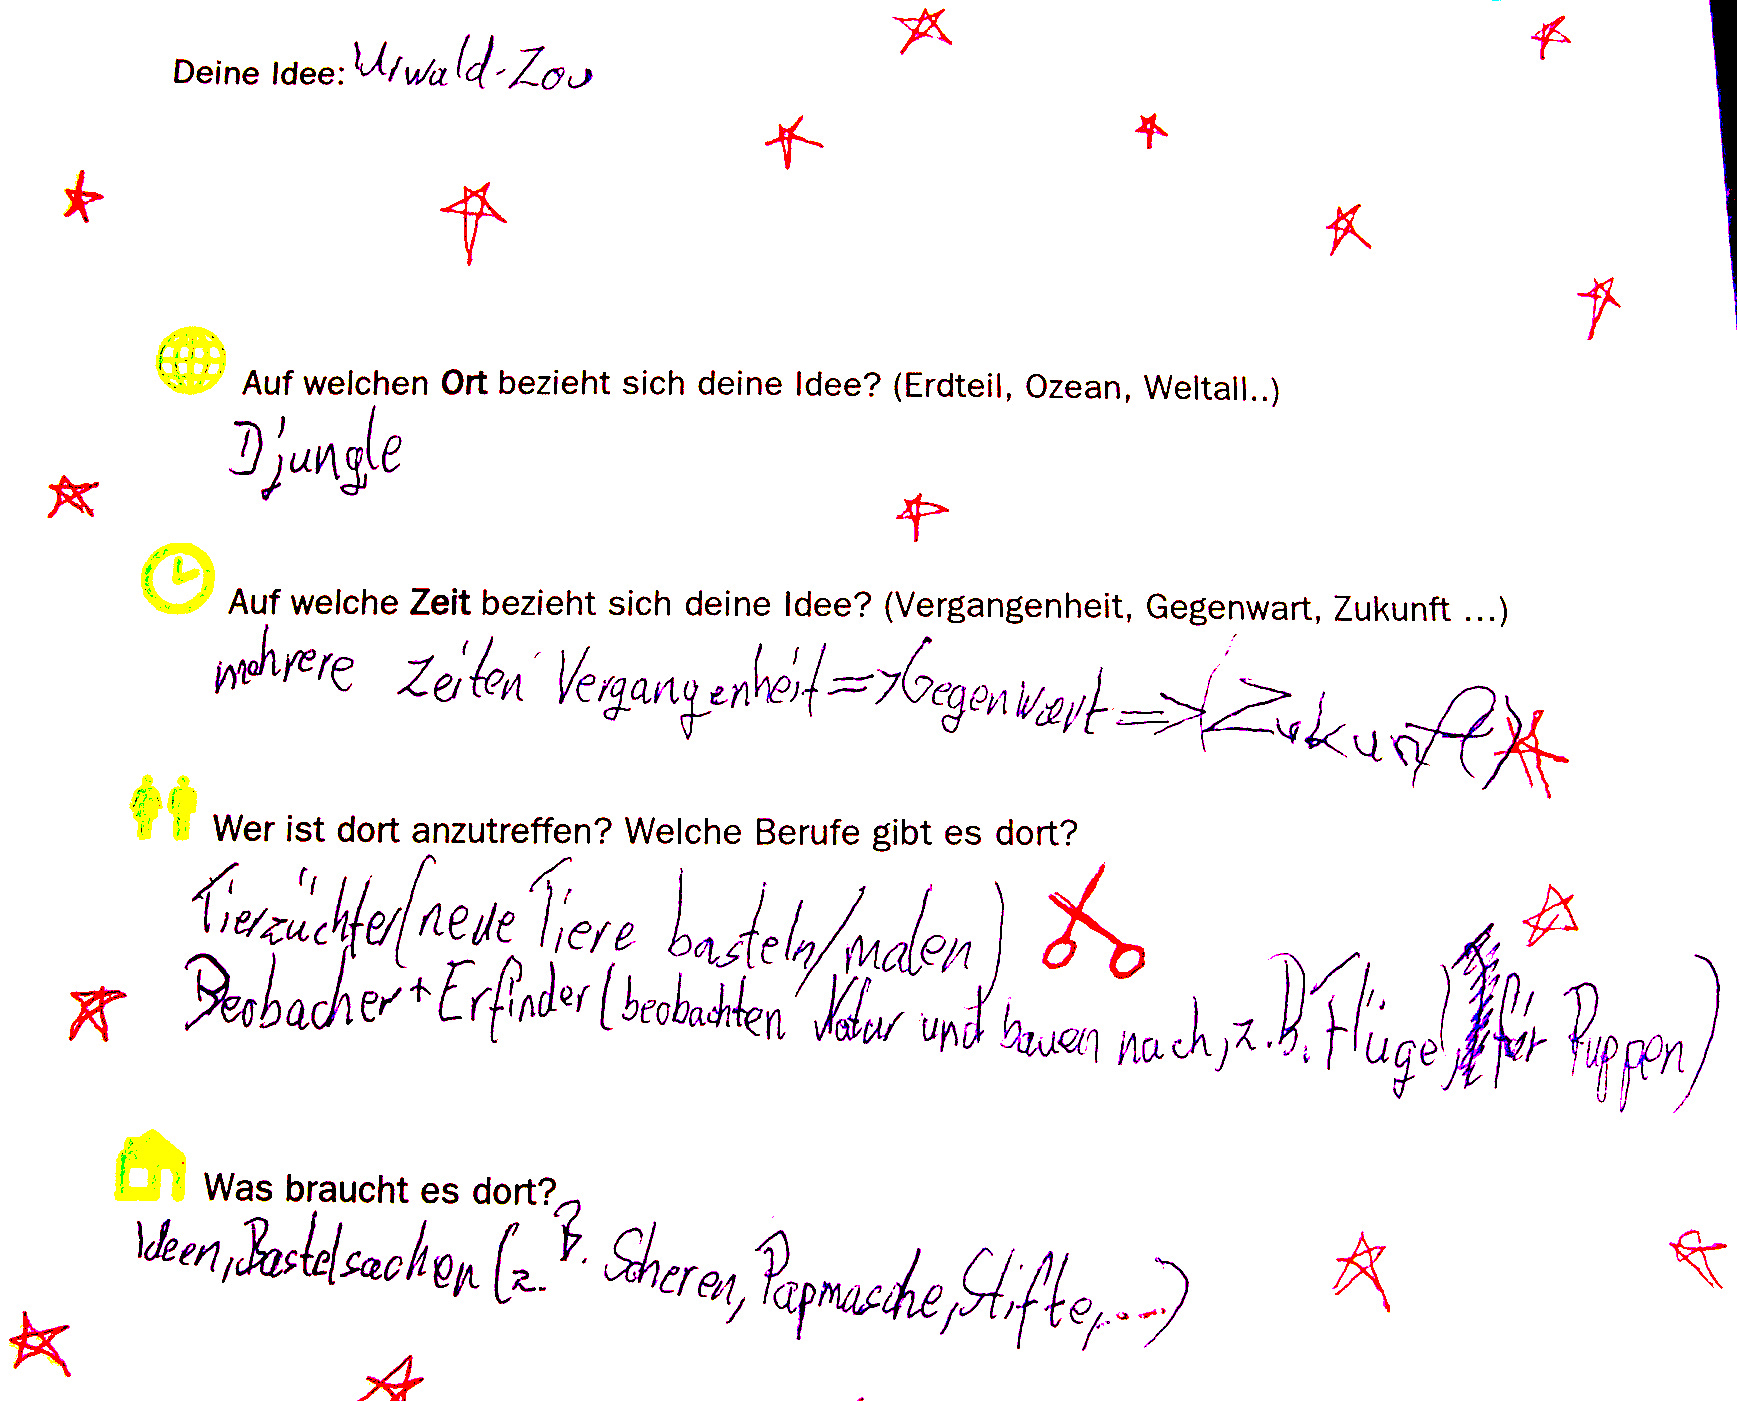 Deine Idee: Urwald-Zou
Auf welchen Ort bezieht sich deine Idee? (Erdteil, Ozean, Weltall..)
Djungle
Auf welche Zeit bezieht sich deine Idee? (Vergangenheit, Gegenwart, Zukunft ...)
mehrere Zeiten Vergangenheit => Gegenwart => (Zukunft)
Wer ist dort anzutreffen? Welche Berufe gibt es dort?
Tierzüchter (neue Tiere basteln/malen)
Beobacher + Erfinder (beobachten Natur und bauen nach, z.B. Flügel, für Puppen)
Was braucht es dort?
Ideen, Bastelsachen (z.B. Scheren, Papmasche, Stifte,...)